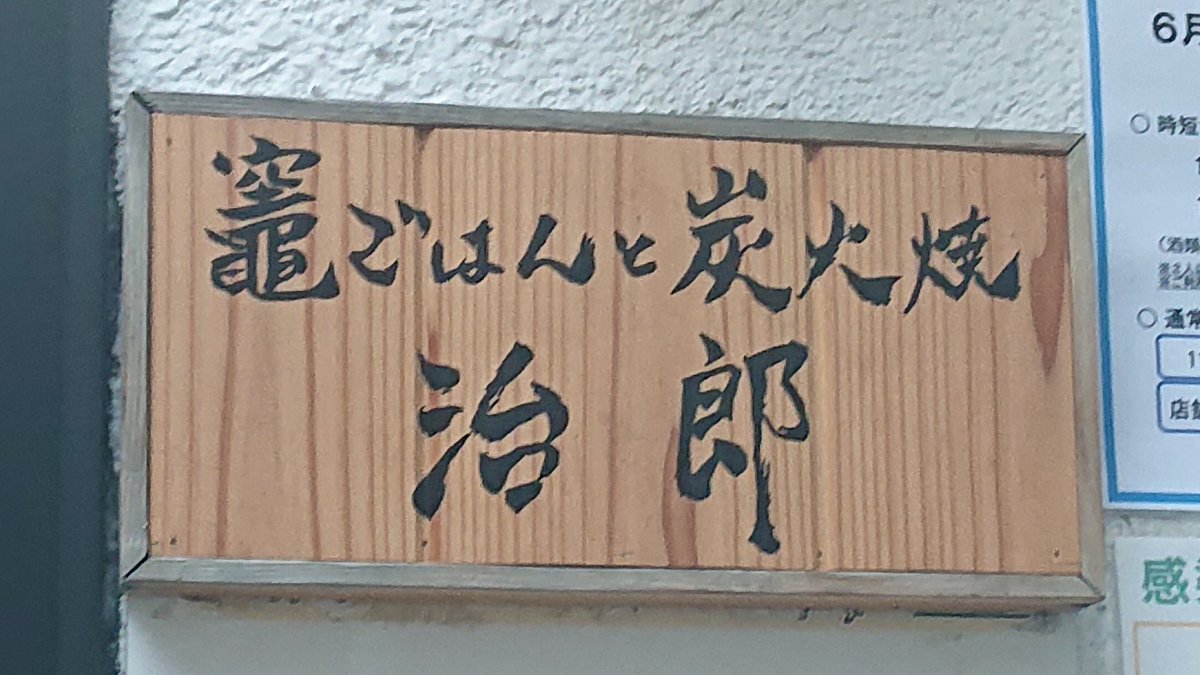 竈ごはんと炭火焼
治郎
6月
○ 時短
(酒類
○ 通常
1
店舗
感